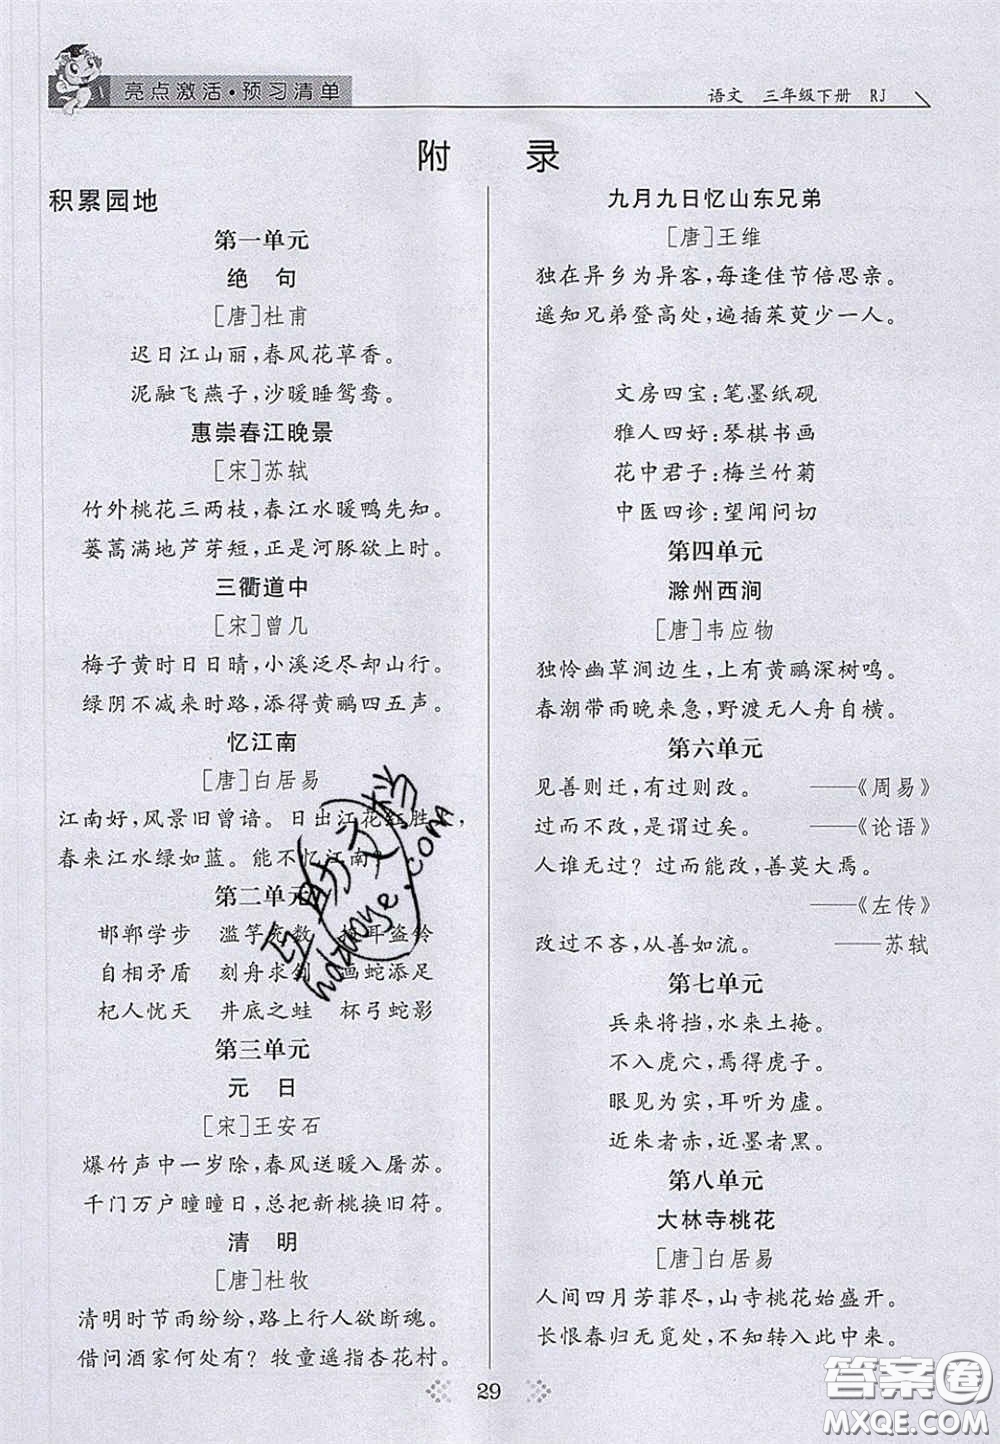 亮点激活·预习清单
语文 三年级下册 RJ
附 录
积累园地
第一单元
绝 句
[唐]杜甫
迟日江山丽,春风花草香。
泥融飞燕子,沙暖睡鸳鸯。
惠崇春江晚景
[宋]苏轼
竹外桃花三两枝,春江水暖鸭先知。
蒌蒿满地芦芽短,正是河豚欲上时。
三衢道中
[宋]曾几
梅子黄时日日晴,小溪泛尽却山行。
绿阴不减来时路,添得黄鹂四五声。
忆江南
[唐]白居易
江南好,风景旧曾谙。日出江花红胜 ,
春来江水绿如蓝。能不忆江南?
第二单元
邯郸学步 滥竽充数 掩耳盗铃
自相矛盾 刻舟求剑 画蛇添足
杞人忧天 井底之蛙 杯弓蛇影
第三单元
元 日
[宋]王安石
爆竹声中一岁除,春风送暖入屠苏。
千门万户曈曈日,总把新桃换旧符。
清 明
[唐]杜牧
清明时节雨纷纷,路上行人欲断魂。
借问酒家何处有?牧童遥指杏花村。
九月九日忆山东兄弟
[唐]王维
独在异乡为异客,每逢佳节倍思亲。
遥知兄弟登高处,遍插茱萸少一人。
文房四宝:笔墨纸砚
雅人四好:琴棋书画
花中君子:梅兰竹菊
中医四诊:望闻问切
第四单元
滁州西涧
[唐]韦应物
独怜幽草涧边生,上有黄鹂深树鸣。
春潮带雨晚来急,野渡无人舟自横。
第六单元
见善则迁,有过则改。 ——《周易》
过而不改,是谓过矣。 ——《论语》
人谁无过?过而能改,善莫大焉。
——《左传》
改过不吝,从善如流。 ——苏轼
第七单元
兵来将挡,水来土掩。
不入虎穴,焉得虎子。
眼见为实,耳听为虚。
近朱者赤,近墨者黑。
第八单元
大林寺桃花
[唐]白居易
人间四月芳菲尽,山寺桃花始盛开。
长恨春归无觅处,不知转入此中来。
29
互助文档
hdzuoye.com
答案圈
MXQE.COM